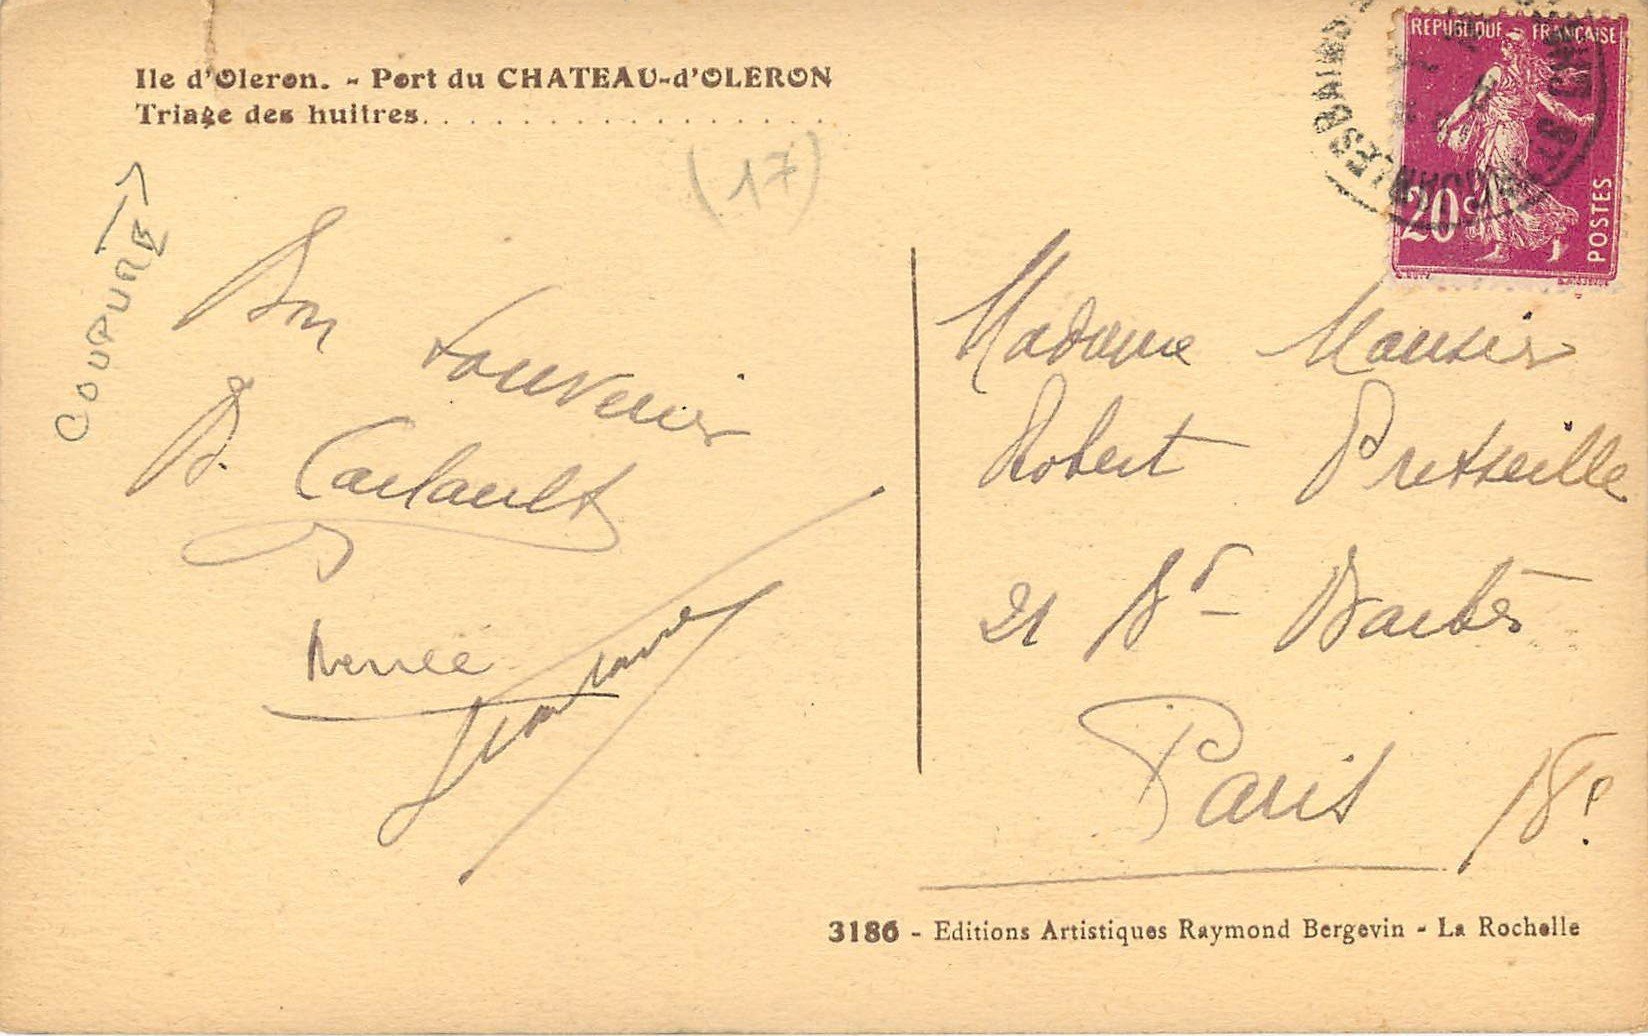 Ile d'Oleron. - Port du CHATEAU-d'OLERON
Triage des huîtres. . . . . . . . . . . . . . . . . .
(17)
COUPURE
Bon
souvenir
B. Carlault
Renée
REPUBLIQUE FRANÇAISE
20c
POSTES
LES BAINS
Madame Monsieur
Robert
21 Bd Barbès
Paris 18e
3186 - Editions Artistiques Raymond Bergevin - La Rochelle